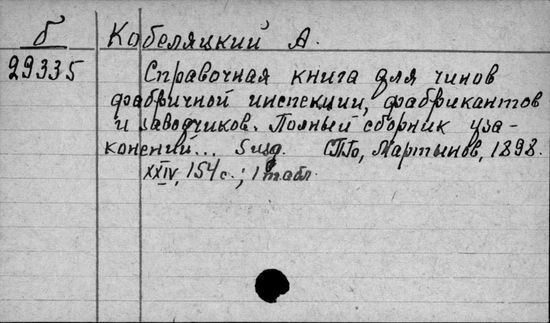 б Кобеляцкий А.
29335 Справочная книга для чинов
фабричной инспекции, фабрикантов
и заводчиков. Полный сборник уза-
конений... 5 изд. СПб, Мартынов, 1898.
XXIV, 154 с.; 1 табл.